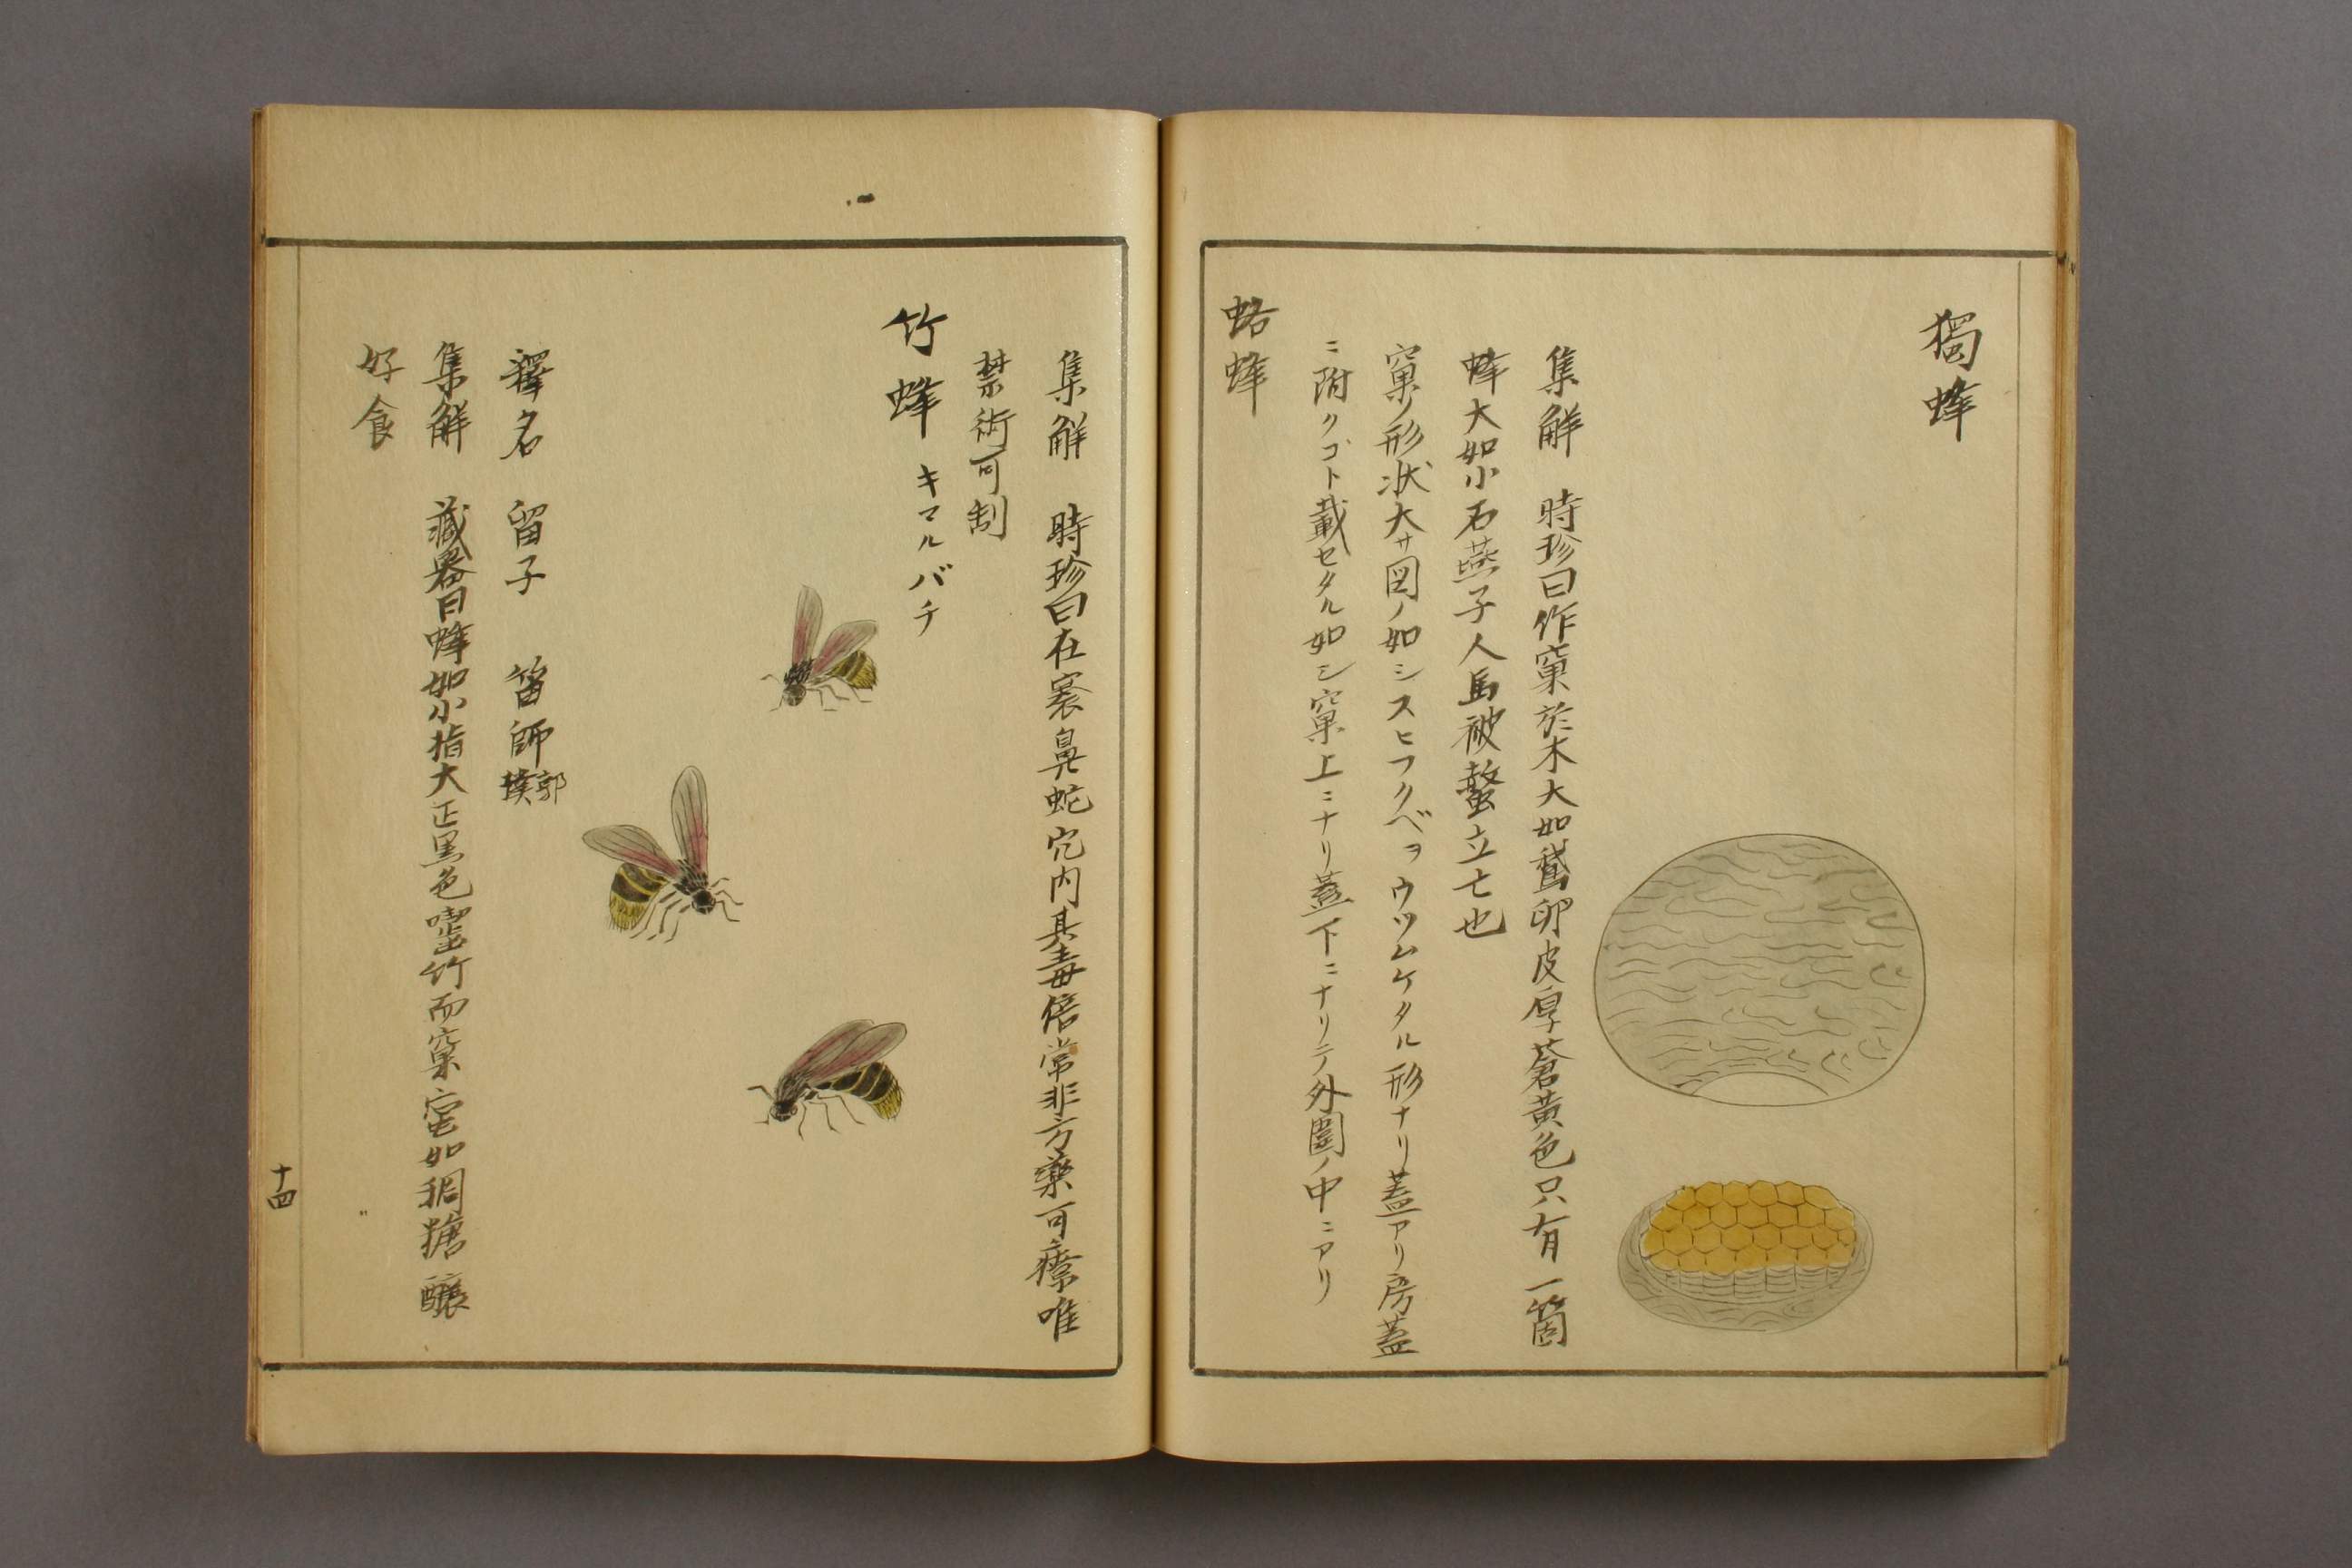 獨蜂
集解 時珍曰作窠於木大如鵞卵皮厚蒼黃色只有一箇
蜂大如小石燕子人馬被螫立亡也
窠ノ形状大サ図ノ如シスヒフクベヲウツムケタル形ナリ蓋アリ房蓋
ニ附クコト載セタル如シ窠上ニナリ蓋下ニナリテ外圍ノ中ニアリ
蛒蜂
集解 時珍曰在褁鼻蛇穴内其毒倍常非方藥可療唯
禁術可制
竹蜂 キマルバチ
釋名 留子 笛師郭璞
集解 藏器曰蜂如小指大正黒色囓竹而窠蜜如稠糖醸
好食
十四